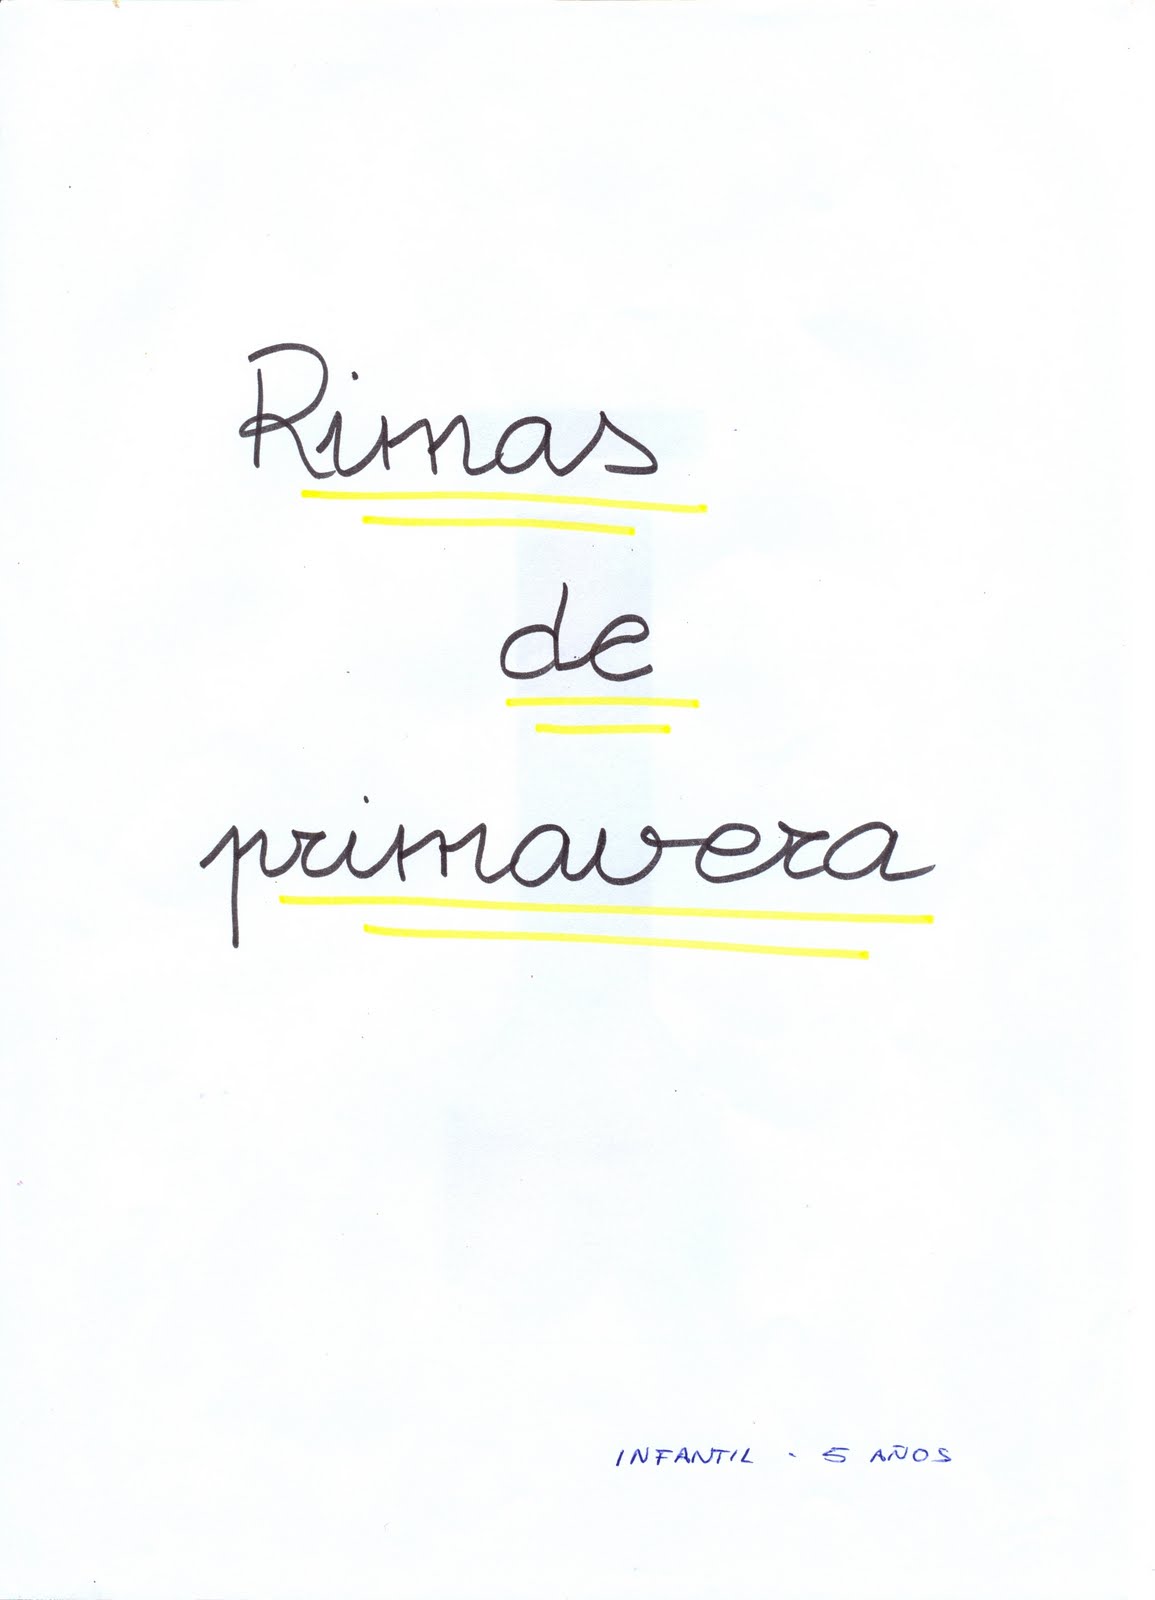 Rimas
de
primavera
INFANTIL - 5 AÑOS